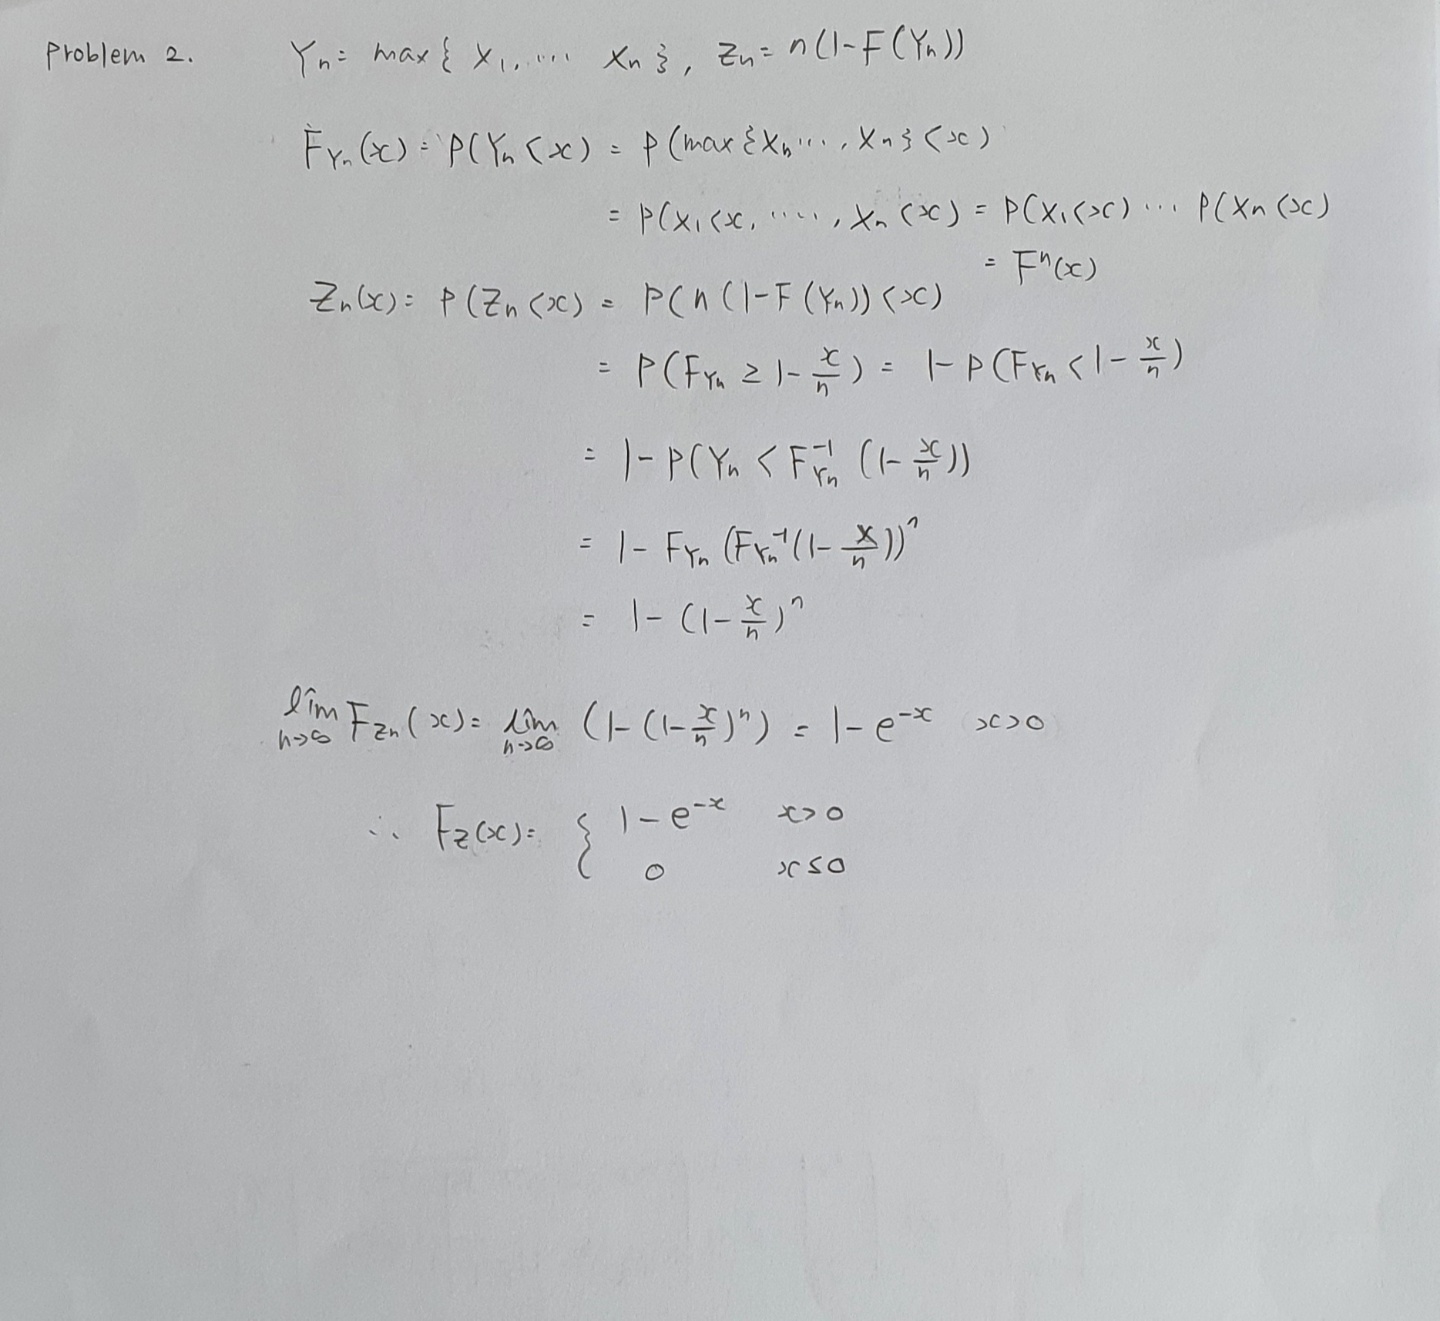 Problem 2. Yn = max{ X1, ... Xn }, Zn = n(1-F(Yn))
FYn(x) = P(Yn < x) = P(max{Xn ..., Xn} < x)
= P(X1 < x, ....., Xn < x) = P(X1 < x) ... P(Xn < x)
= F^n(x)
Zn(x) = P(Zn < x) = P(n(1-F(Yn)) < x)
= P(FYn ≥ 1 - x/n) = 1 - P(FYn < 1 - x/n)
= 1 - P(Yn < FYn^-1 (1 - x/n))
= 1 - FYn (FYn^-1(1 - x/n))^n
= 1 - (1 - x/n)^n
lim n→∞ FZn(x) = lim n→∞ (1 - (1 - x/n)^n) = 1 - e^-x x>0
∴ FZ(x) = { 1 - e^-x x>0
0 x≤0